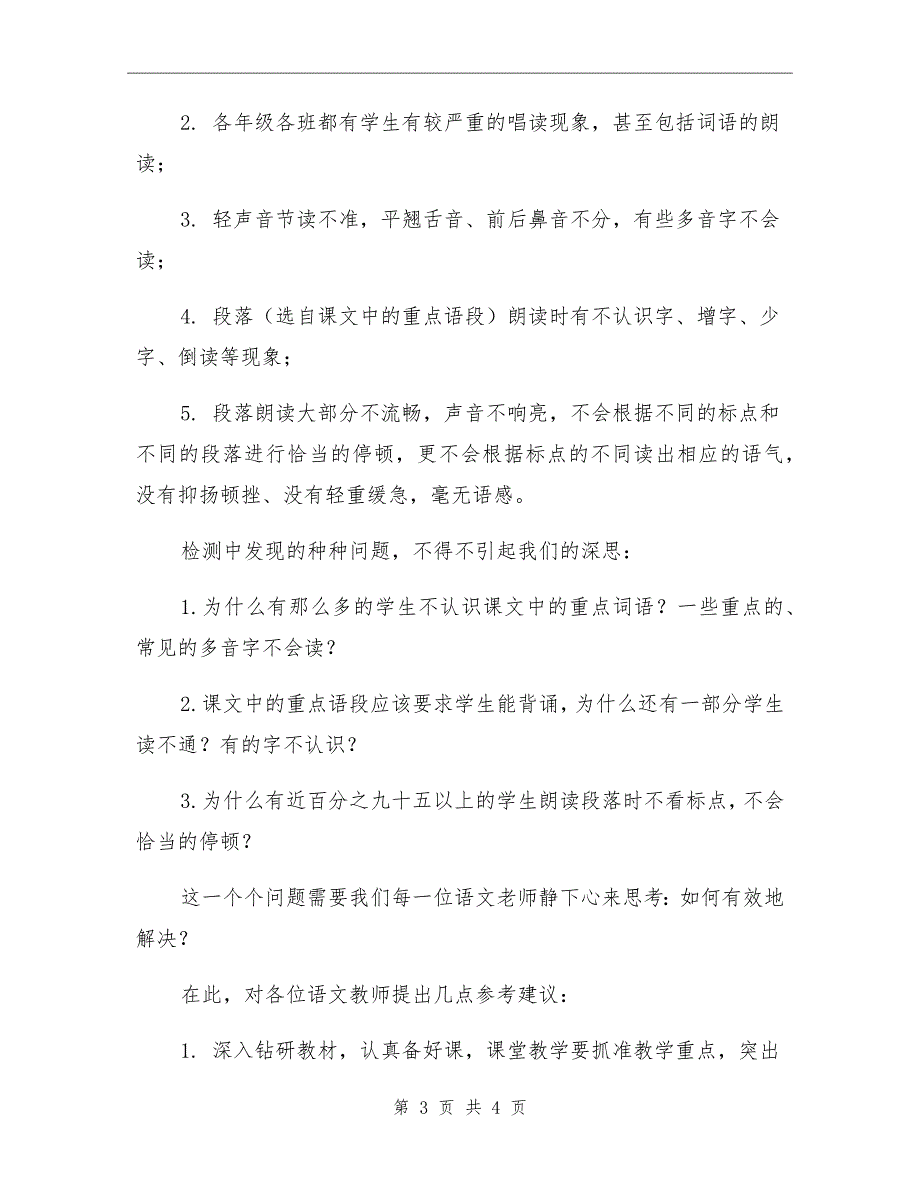 2. 各年级各班都有学生有较严重的唱读现象，甚至包括词语的朗
读；
3. 轻声音节读不准，平翘舌音、前后鼻音不分，有些多音字不会
读；
4. 段落（选自课文中的重点语段）朗读时有不认识字、增字、少
字、倒读等现象；
5. 段落朗读大部分不流畅，声音不响亮，不会根据不同的标点和
不同的段落进行恰当的停顿，更不会根据标点的不同读出相应的语气，
没有抑扬顿挫、没有轻重缓急，毫无语感。
检测中发现的种种问题，不得不引起我们的深思：
1.为什么有那么多的学生不认识课文中的重点词语？一些重点的、
常见的多音字不会读？
2.课文中的重点语段应该要求学生能背诵，为什么还有一部分学生
读不通？有的字不认识？
3.为什么有近百分之九十五以上的学生朗读段落时不看标点，不会
恰当的停顿？
这一个个问题需要我们每一位语文老师静下心来思考：如何有效地
解决？
在此，对各位语文教师提出几点参考建议：
1. 深入钻研教材，认真备好课，课堂教学要抓准教学重点，突出
第 3 页 共 4 页